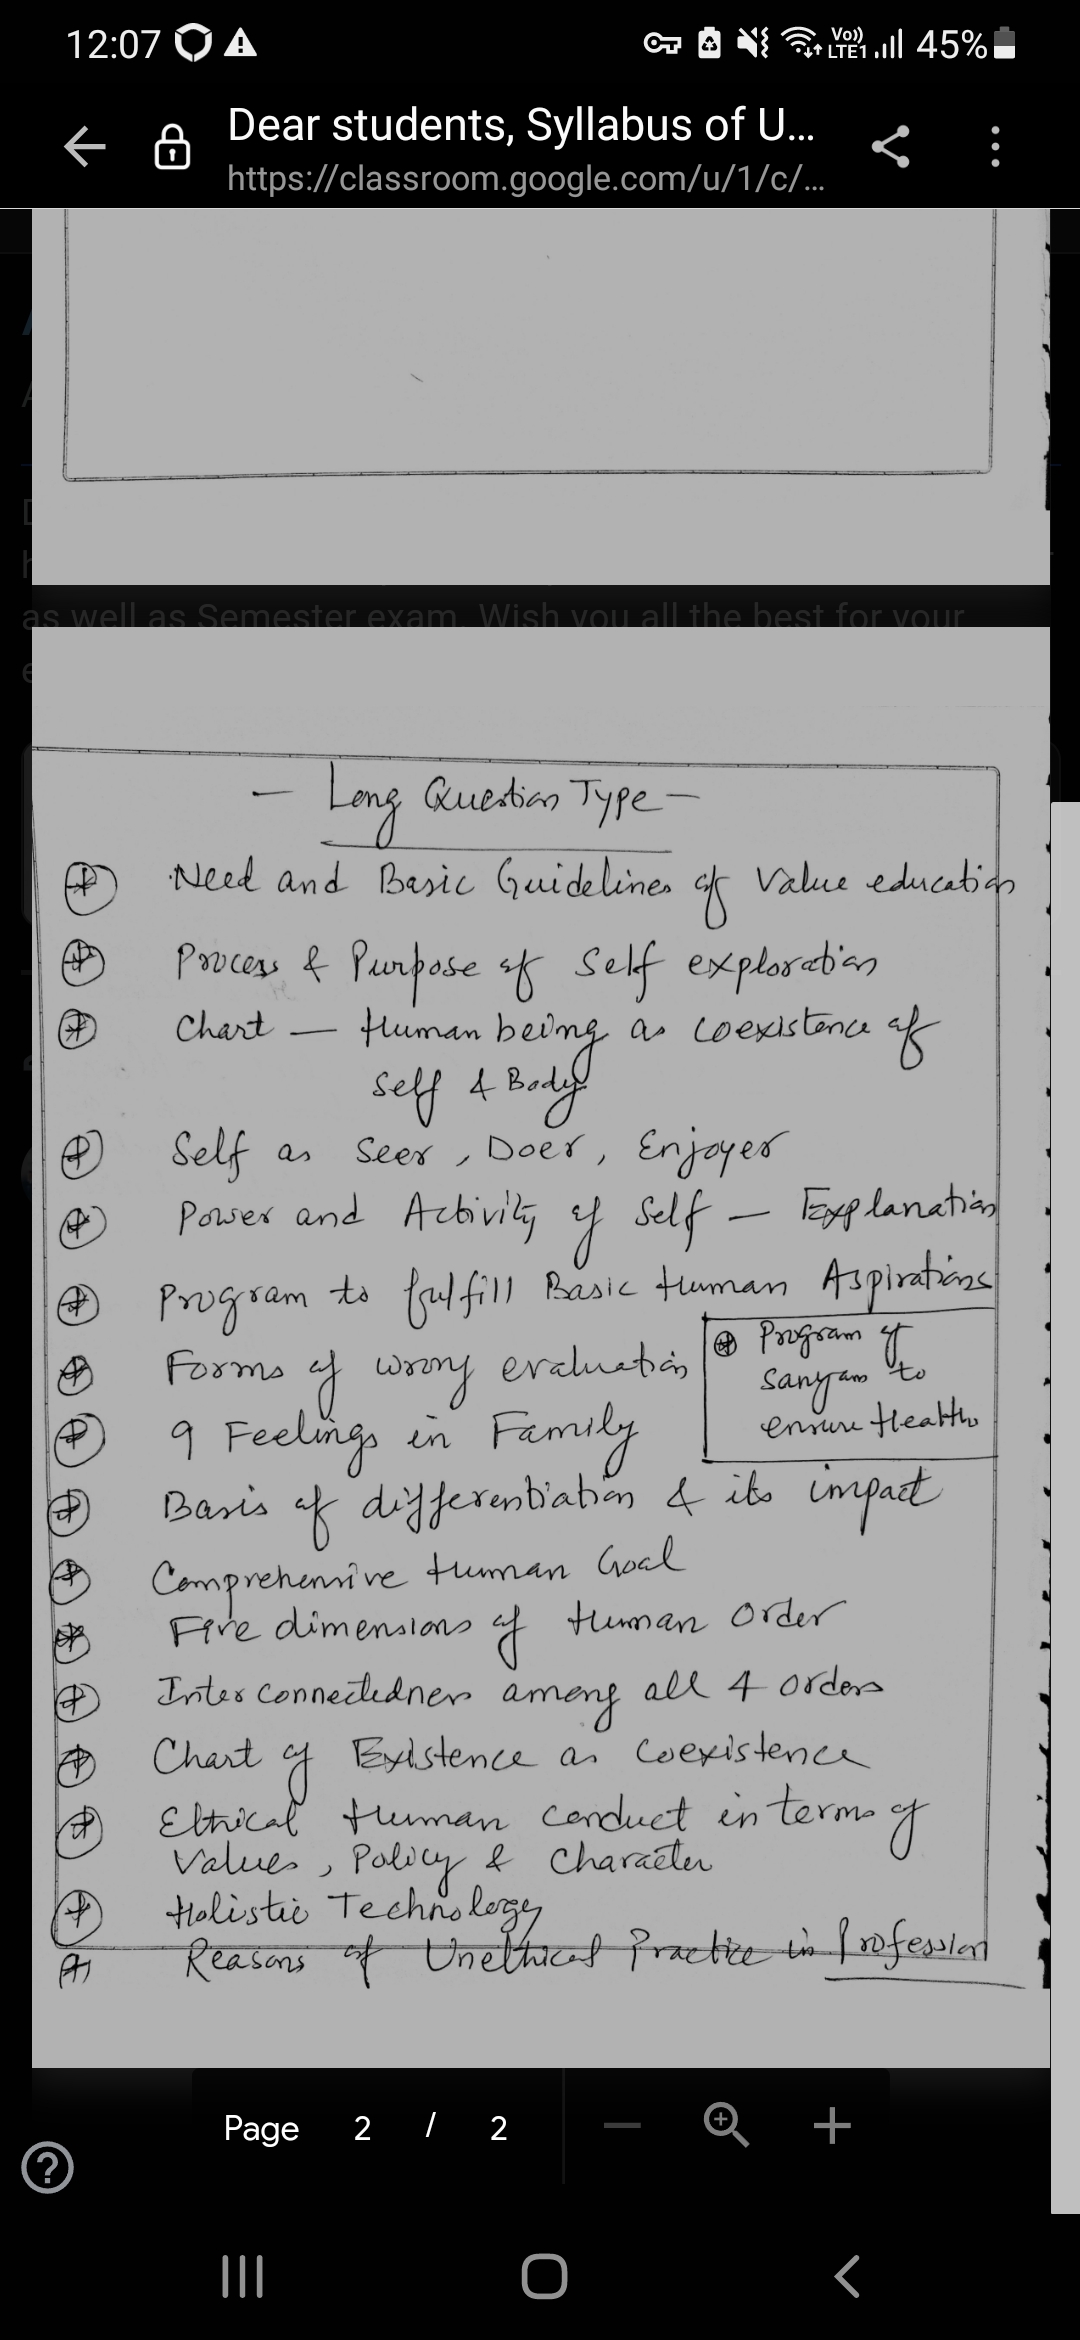 12:07 45%
Vo)) LTE1
Dear students, Syllabus of U...
https://classroom.google.com/u/1/c/...
as well as Semester exam. Wish you all the best for your
- Long Question Type -
Need and Basic Guidelines of Value education
Process & Purpose of Self exploration
Chart — Human being as coexistence of
Self & Body
Self as Seer, Doer, Enjoyer
Power and Activity of Self — Explanation
Program to fulfill Basic Human Aspirations
Forms of wrong evaluation
Program of
sanyam to
ensure Health
9 Feelings in Family
Basis of differentiation & its impact
Comprehensive Human Goal
Five dimensions of Human Order
Interconnectedness among all 4 orders
Chart of Existence as Coexistence
Ethical Human conduct in terms of
Values, Policy & Character
Holistic Technology
Reasons of Unethical Practice in Profession
Page 2 / 2